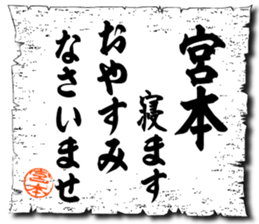 宮本
寝ます
おやすみ
なさいませ
宮本